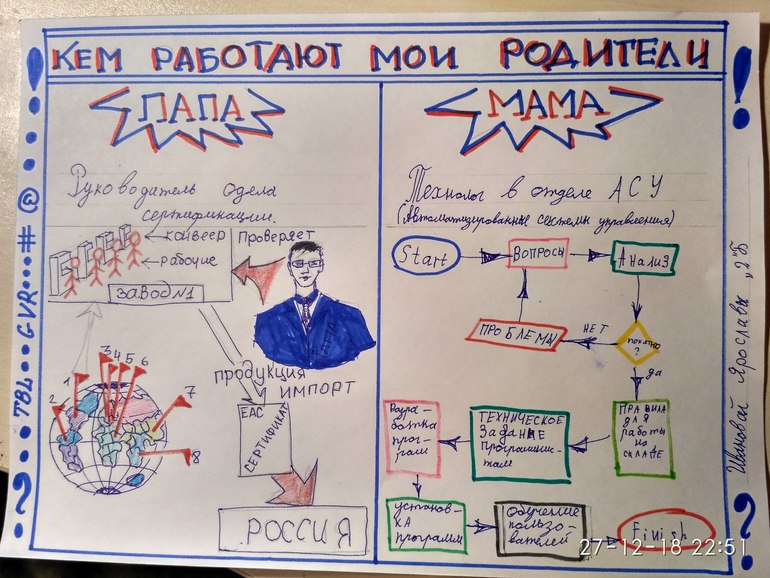 КЕМ РАБОТАЮТ МОИ РОДИТЕЛИ
ПАПА
Руководитель одела
сертификации.
конвеер
рабочие
Проверяет
ЗАВОД №1
ПРОДУКЦИЯ
ИМПОРТ
ЕАС
СЕРТИФИКАТ
РОССИЯ
1
2
3 4 5 6
7
8
МАМА
Технолог в отделе АСУ
(Автоматизированные системы управления)
Start
ВОПРОСЫ
Анализ
ПРОБЛЕМА!
НЕТ
понятно
?
да
ПРАВИЛА
ДЛЯ
работы
на
складе
ТЕХНИЧЕСКОЕ
Задание
Программис-
там
Разра-
ботка
прог-
рам
установ-
ка
программ
Обучение
пользо-
вателей
Finish
Ивановой Ярославы „2"Б
27-12-18 22:51